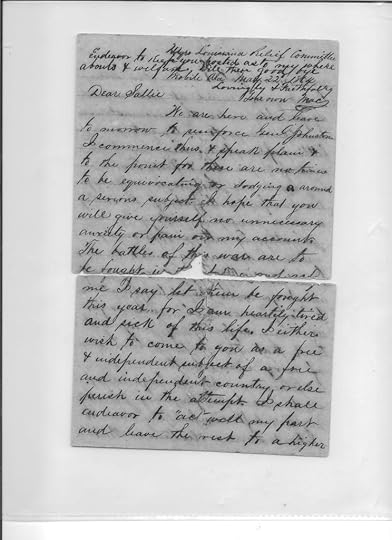 Hdqrs Louisiana Relief Committee
Endeavor to keep you posted as to my where
abouts & welfare, till then good bye
Mobile Ala May 22, 1864
Lovingly & Faithfully
Your own Mac
Dear Sallie
We are here and leave
to morrow to reinforce Genl Johnston
I commence thus & speak plain &
to the point for these are no times
to be equivocating or dodging around
a serious subject. I hope that you
will give yourself no unnecessary
anxiety or pain on my account.
The battles of this war are to
be fought in the
me I say let them be fought
this year for I am heartily tired
and sick of this life. I either
wish to come to you as a free
& independent subject of a free
and independent country, or else
perish in the attempt. I shall
endeavor to "act" well my part
and leave the rest to a higher